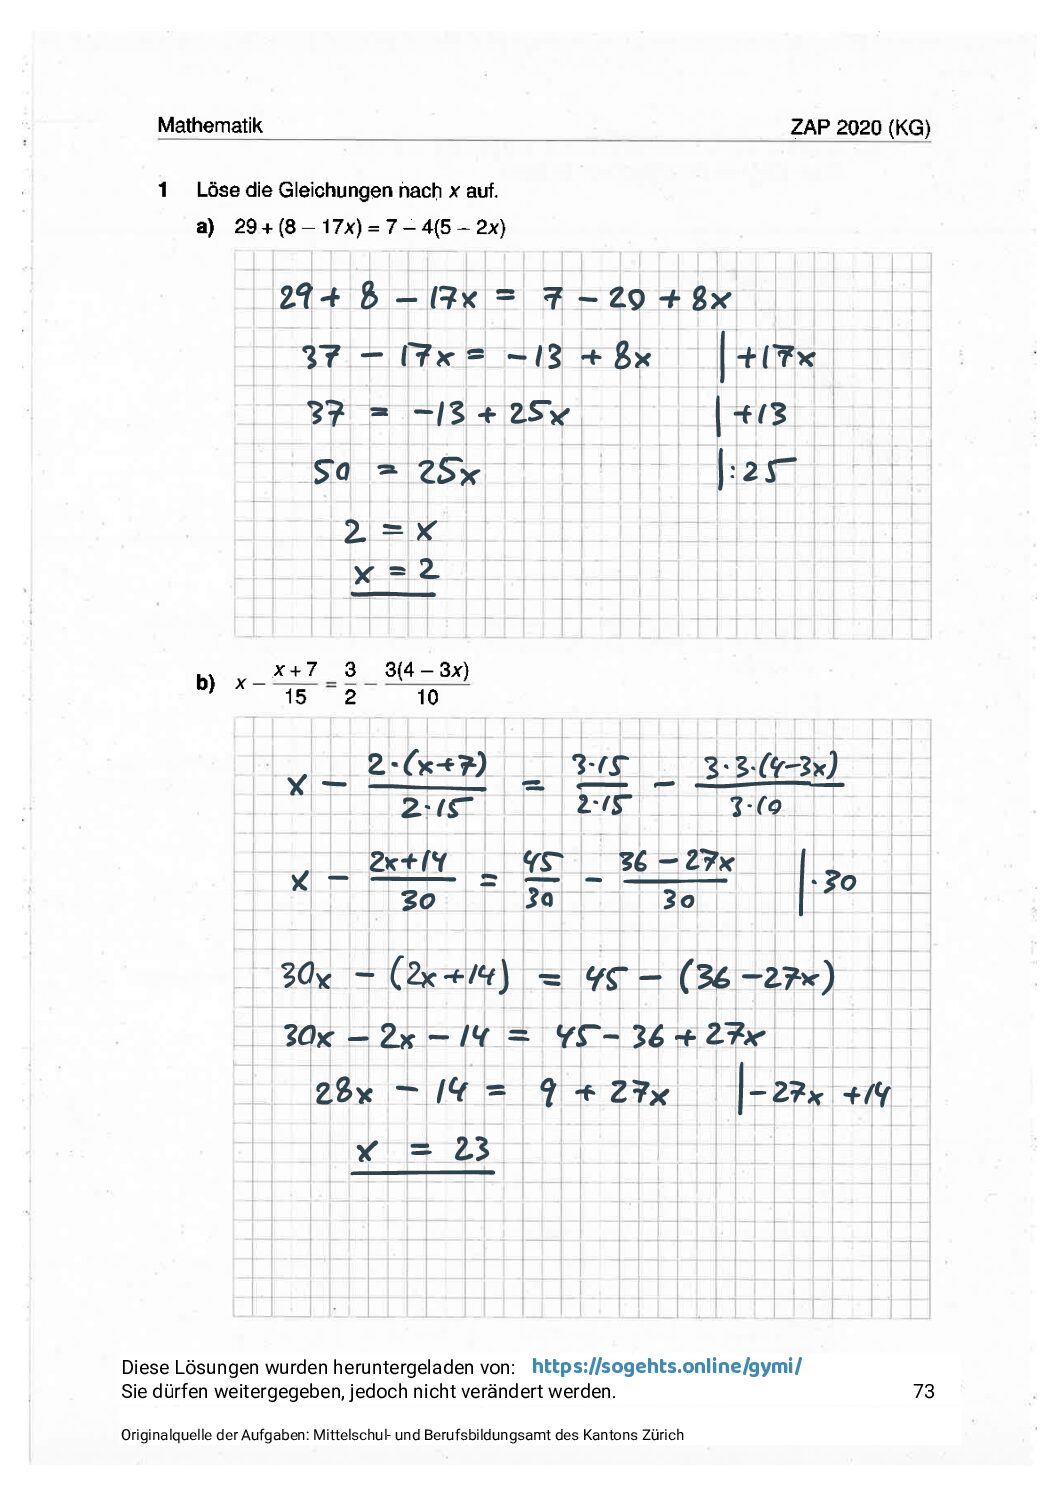 Mathematik ZAP 2020 (KG)
1 Löse die Gleichungen nach x auf.
a) 29 + (8 – 17x) = 7 – 4(5 – 2x)
29 + 8 – 17x = 7 – 20 + 8x
37 – 17x = –13 + 8x |+17x
37 = –13 + 25x |+13
50 = 25x |:25
2 = x
x = 2
b) x – (x + 7)/15 = 3/2 – 3(4 – 3x)/10
x – 2·(x+7)/2·15 = 3·15/2·15 – 3·3·(4–3x)/3·10
x – 2x+14/30 = 45/30 – 36 – 27x/30 |·30
30x – (2x+14) = 45 – (36 –27x)
30x – 2x – 14 = 45 – 36 + 27x
28x – 14 = 9 + 27x |–27x +14
x = 23
Diese Lösungen wurden heruntergeladen von: https://sogehts.online/gymi/
Sie dürfen weitergegeben, jedoch nicht verändert werden. 73
Originalquelle der Aufgaben: Mittelschul- und Berufsbildungsamt des Kantons Zürich